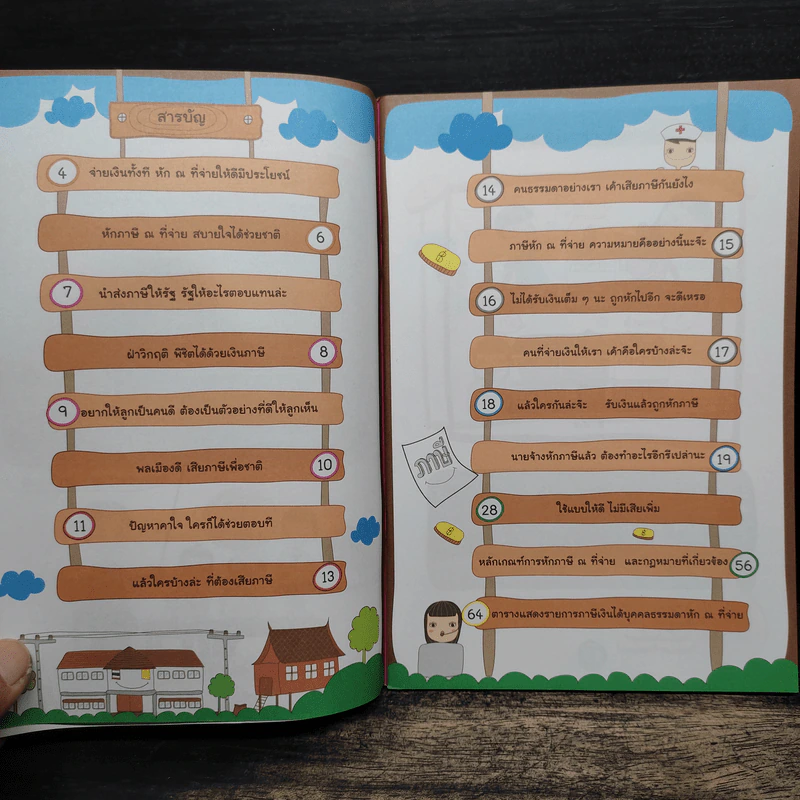 สารบัญ
4 จ่ายเงินทั้งที หัก ณ ที่จ่ายให้ดีมีประโยชน์
หักภาษี ณ ที่จ่าย สบายใจได้ช่วยชาติ 6
7 นำส่งภาษีให้รัฐ รัฐให้อะไรตอบแทนล่ะ
ฝ่าวิกฤติ พิชิตได้ด้วยเงินภาษี 8
9 อยากให้ลูกเป็นคนดี ต้องเป็นตัวอย่างที่ดีให้ลูกเห็น
พลเมืองดี เสียภาษีเพื่อชาติ 10
11 ปัญหาคาใจ ใครก็ได้ช่วยตอบที
แล้วใครบ้างล่ะ ที่ต้องเสียภาษี 13
14 คนธรรมดาอย่างเรา เค้าเสียภาษีกันยังไง
ภาษีหัก ณ ที่จ่าย ความหมายคืออย่างนี้นะจ๊ะ 15
16 ไม่ได้รับเงินเต็ม ๆ นะ ถูกหักไปอีก จะดีเหรอ
คนที่จ่ายเงินให้เรา เค้าคือใครบ้างล่ะจ๊ะ 17
18 แล้วใครกันล่ะจ๊ะ รับเงินแล้วถูกหักภาษี
นายจ้างหักภาษีแล้ว ต้องทำอะไรอีกรึเปล่านะ 19
ภาษี
28 ใช้แบบให้ดี ไม่มีเสียเพิ่ม
หลักเกณฑ์การหักภาษี ณ ที่จ่าย และกฎหมายที่เกี่ยวข้อง 56
64 ตารางแสดงรายการภาษีเงินได้บุคคลธรรมดาหัก ณ ที่จ่าย